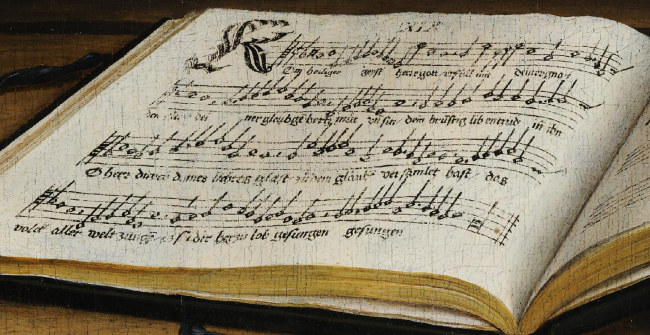 XIX
Kom heiliger geyst herregott erfüll mit deiner gnad
den dei ner gleubge hertz mut vn sin dein brüstig lib entzud in ihn
O herr durch deines lichtes glast zu dem glaube versamlet hast das
volck aller welt zunge dir herr lob gesungen gesungen